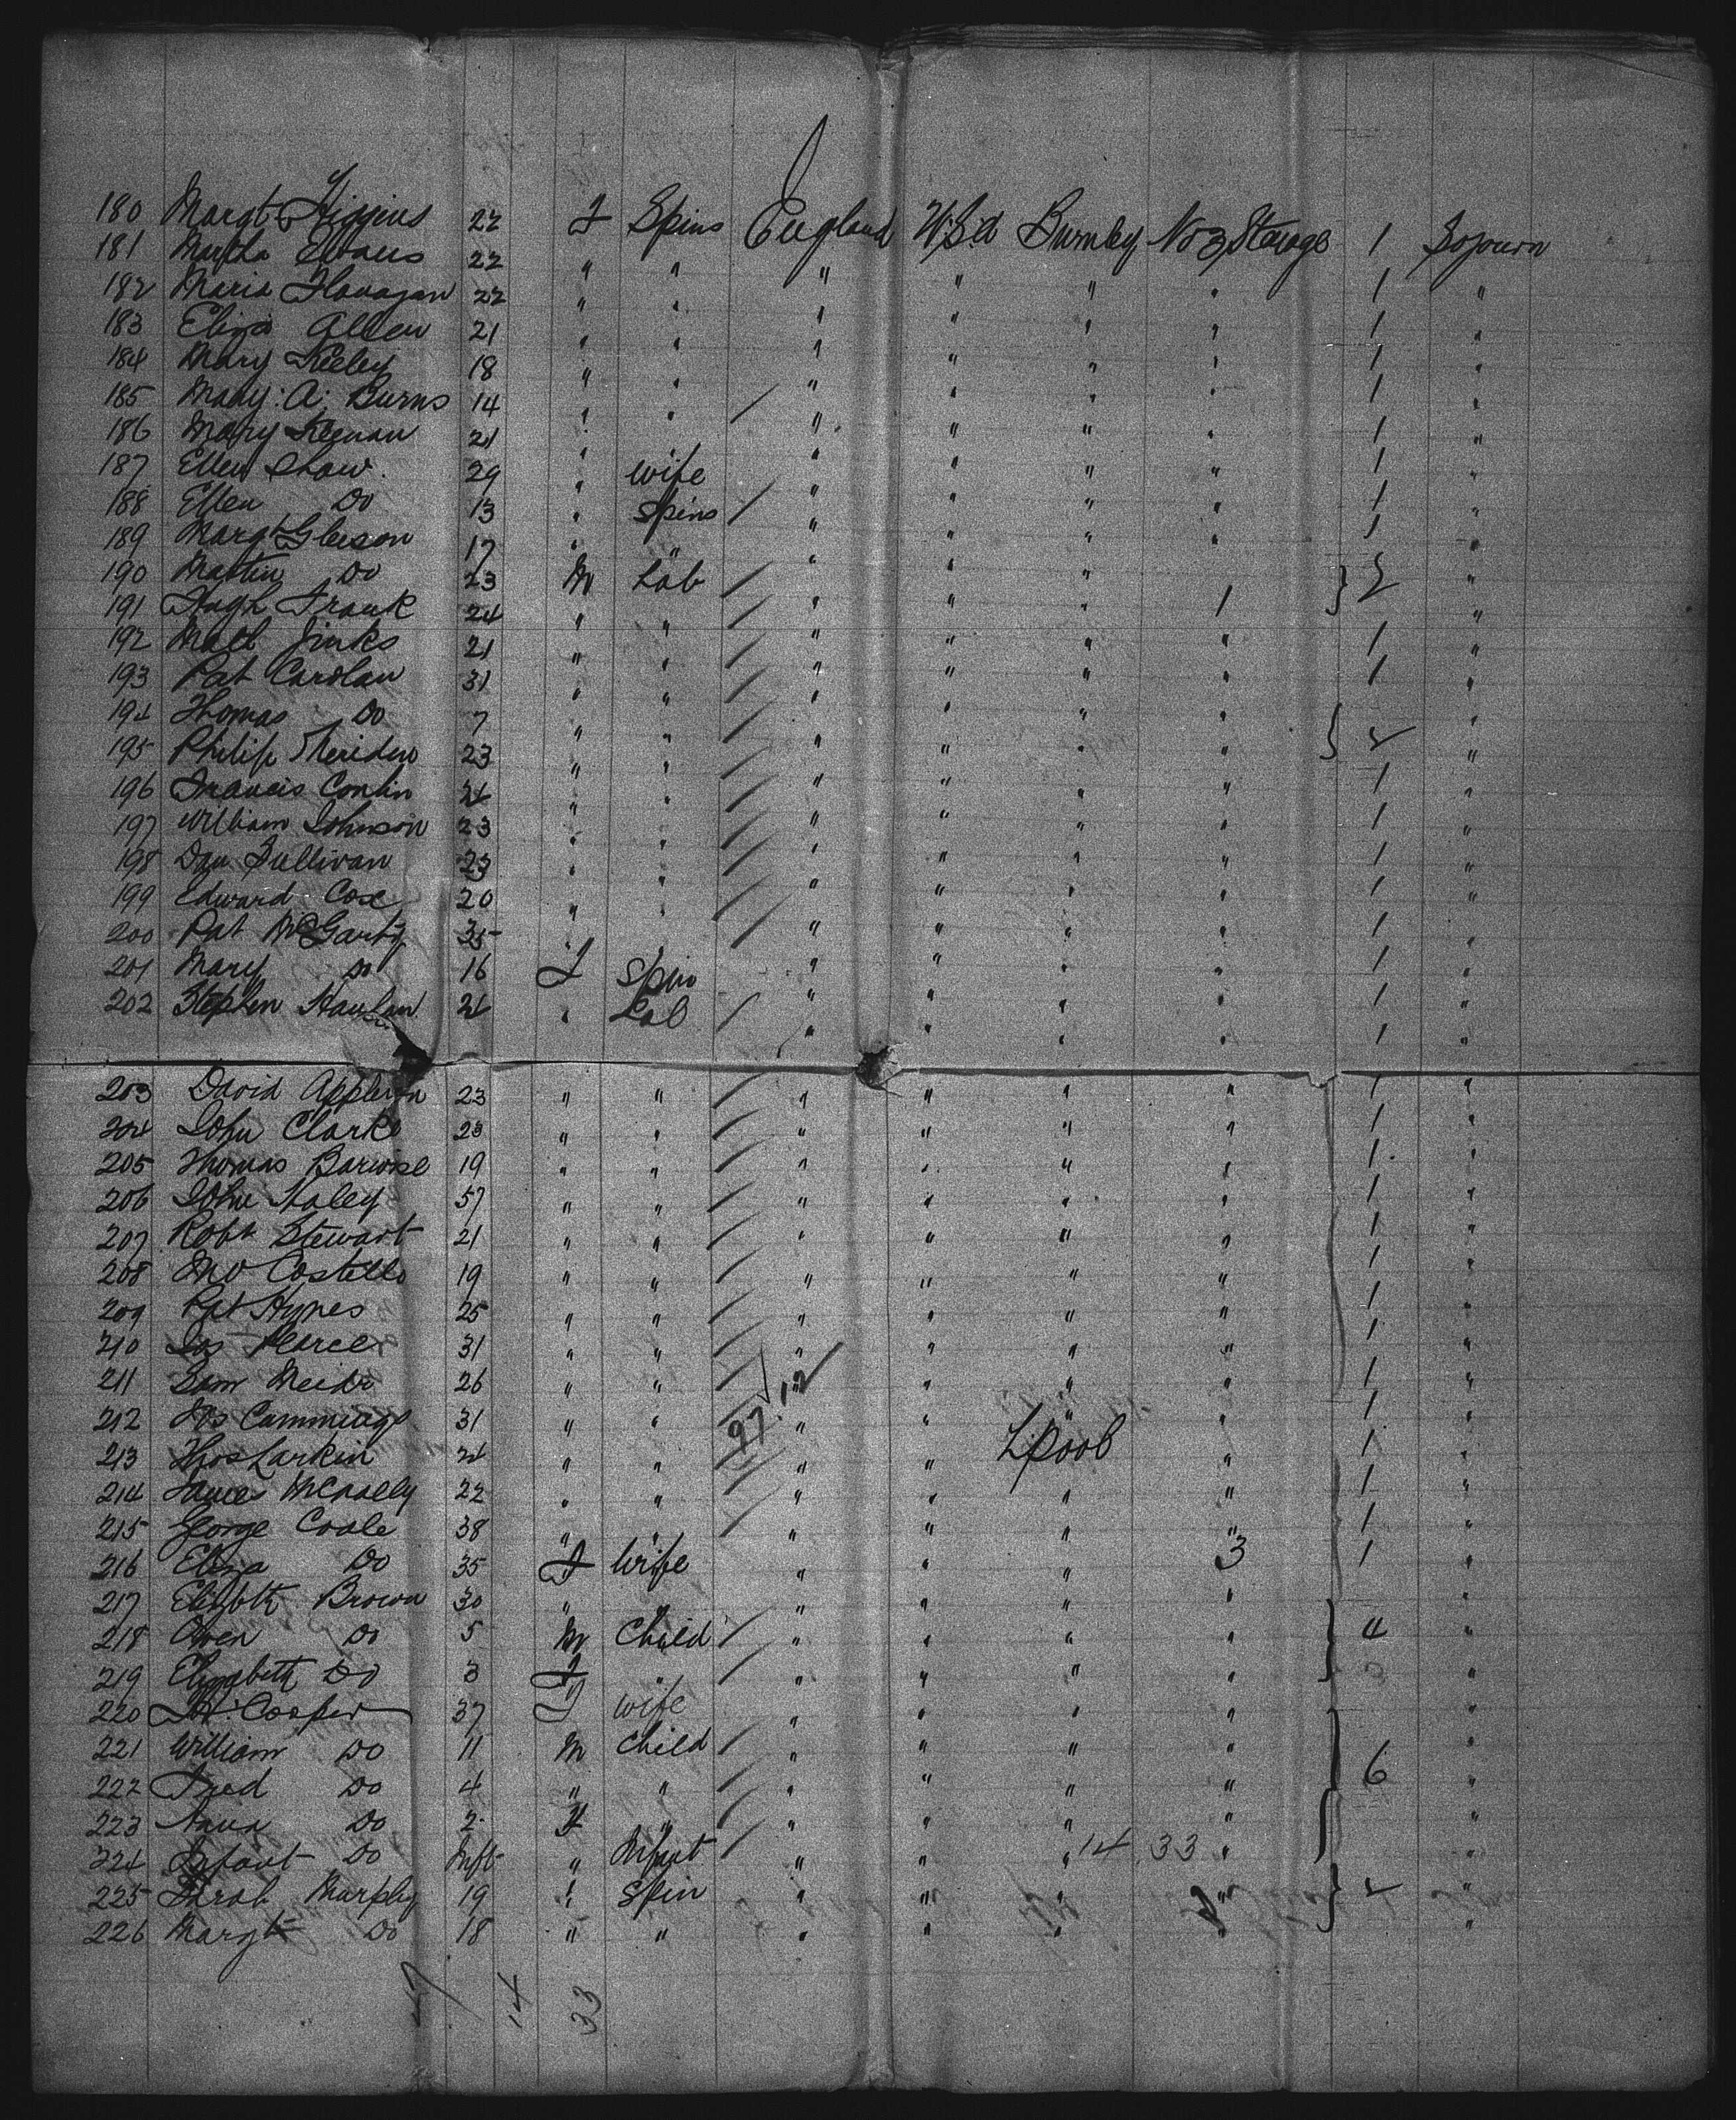 180 Margt Higgins 22 F Spins England U.S.A Burnley No 3 Sterage 1 Sojourn
181 Martha Evans 22 " " " " " " 1 "
182 Maria Flanagan 22 " " " " " " 1 "
183 Eliza Allen 21 " " " " " " 1 "
184 Mary Keeley 18 " " " " " " 1 "
185 Mary A. Burns 14 " " " " " " 1 "
186 Mary Keenan 21 " " " " " " 1 "
187 Ellen Shaw 29 " wife " " " " 1 "
188 Ellen Do 13 " Spins " " " " 1 "
189 Margt Gleeson 17 " " " " " "
190 Martin Do 23 M Lab " " " } 2 "
191 Hugh Frank 24 " " " " " 1 "
192 Matt Jinks 21 " " " " " " 1 "
193 Pat Carolan 31 " " " " " " 1 "
194 Thomas Do 7 " " " " " " } 2 "
195 Philip Sheriden 23 " " " " " " "
196 Francis Conlin 24 " " " " " " 1 "
197 William Johnson 23 " " " " " " 1 "
198 Dan Sullivan 23 " " " " " " 1 "
199 Edward Cox 20 " " " " " " 1 "
200 Pat McGarty 35 " " " " " " 1 "
201 Mary Do 16 F Spin " " " " 1 "
202 Stephen Hanlan 24 " Lab " " " " 1 "
203 David Appleton 23 " " " " " " 1 "
204 John Clarke 23 " " " " " " 1 "
205 Thomas Barwise 19 " " " " " " 1 "
206 John Haley 57 " " " " " " 1 "
207 Robt Stewart 21 " " " " " " 1 "
208 Costello 19 " " " " " " 1 "
209 Pat Hynes 25 " " " " " " 1 "
210 Jas Pearce 31 " " " " " " 1 "
211 Sam 26 " " " " " " 1 "
212 Cummings 31 " " 97 12 " " " " 1 "
213 Thos Larkin 24 " " " " L'pool " 1 "
214 James McNally 22 " " " " " " 1 "
215 George Coale 38 " " " " " " 1 "
216 Eliza Do 35 F Wife " " " 3 1 "
217 Elizbth Brown 30 " " " " " " "
218 Owen Do 5 M Child " " " " } 4 "
219 Elizabeth Do 3 F " " " " " "
220 Cooper 37 F wife " " " " "
221 William Do 11 M Child " " " " "
222 Fred Do 4 " " " " " " } 6 "
223 Anna Do 2 F " " " " " "
224 Infant Do Inft " Infant " " " 14 33 " "
225 Sarah Murphy 19 " Spin " " " " } 2 "
226 Margt Do 18 " " " " " " "
47 14 33